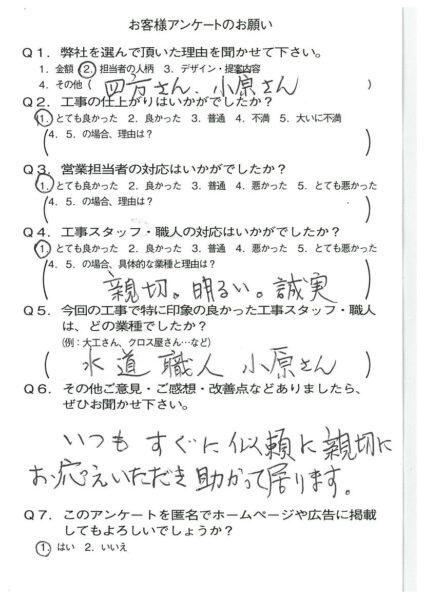 お客様アンケートのお願い
Q1. 弊社を選んで頂いた理由を聞かせて下さい。
1. 金額 2. 担当者の人柄 3. デザイン・提案内容
4. その他 ( 四方さん、小原さん )
Q2. 工事の仕上がりはいかがでしたか?
1. とても良かった 2. 良かった 3. 普通 4. 不満 5. 大いに不満
(4. 5. の場合、理由は? )
Q3. 営業担当者の対応はいかがでしたか?
1. とても良かった 2. 良かった 3. 普通 4. 悪かった 5. とても悪かった
(4. 5. の場合、理由は? )
Q4. 工事スタッフ・職人の対応はいかがでしたか?
1. とても良かった 2. 良かった 3. 普通 4. 悪かった 5. とても悪かった
(4. 5. の場合、具体的な業種と理由は?
親切。明るい。誠実 )
Q5. 今回の工事で特に印象の良かった工事スタッフ・職人
は、どの業種でしたか?
(例:大工さん、クロス屋さん…など)
( 水道職人 小原さん )
Q6. その他ご意見・ご感想・改善点などありましたら、
ぜひお聞かせ下さい。
いつも すぐに依頼に親切に
お応えいただき助かって居ります。
Q7. このアンケートを匿名でホームページや広告に掲載
してもよろしいでしょうか?
1. はい 2. いいえ